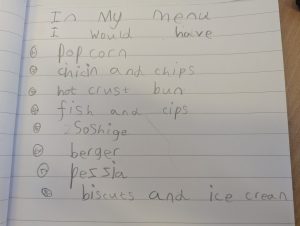 In My menu
I would haive
popcorn
chicin and chips
hot crust bun
fish and cips
Soshige
berger
pessia
biscuts and ice crean